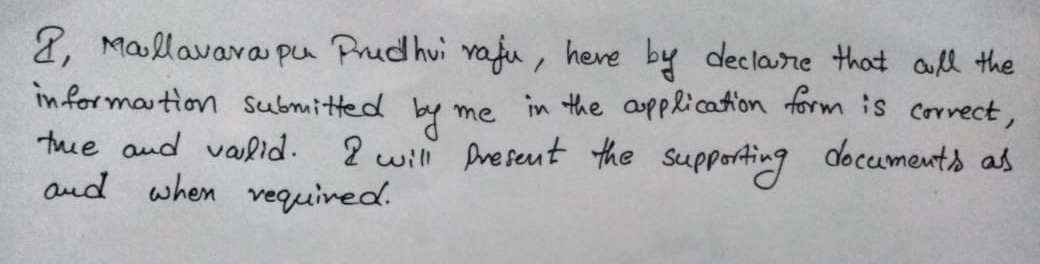 I, Mallavarapu Prudhvi raju, here by declare that all the
information submitted by me in the application form is correct,
true and valid. I will present the supporting documents as
and when required.